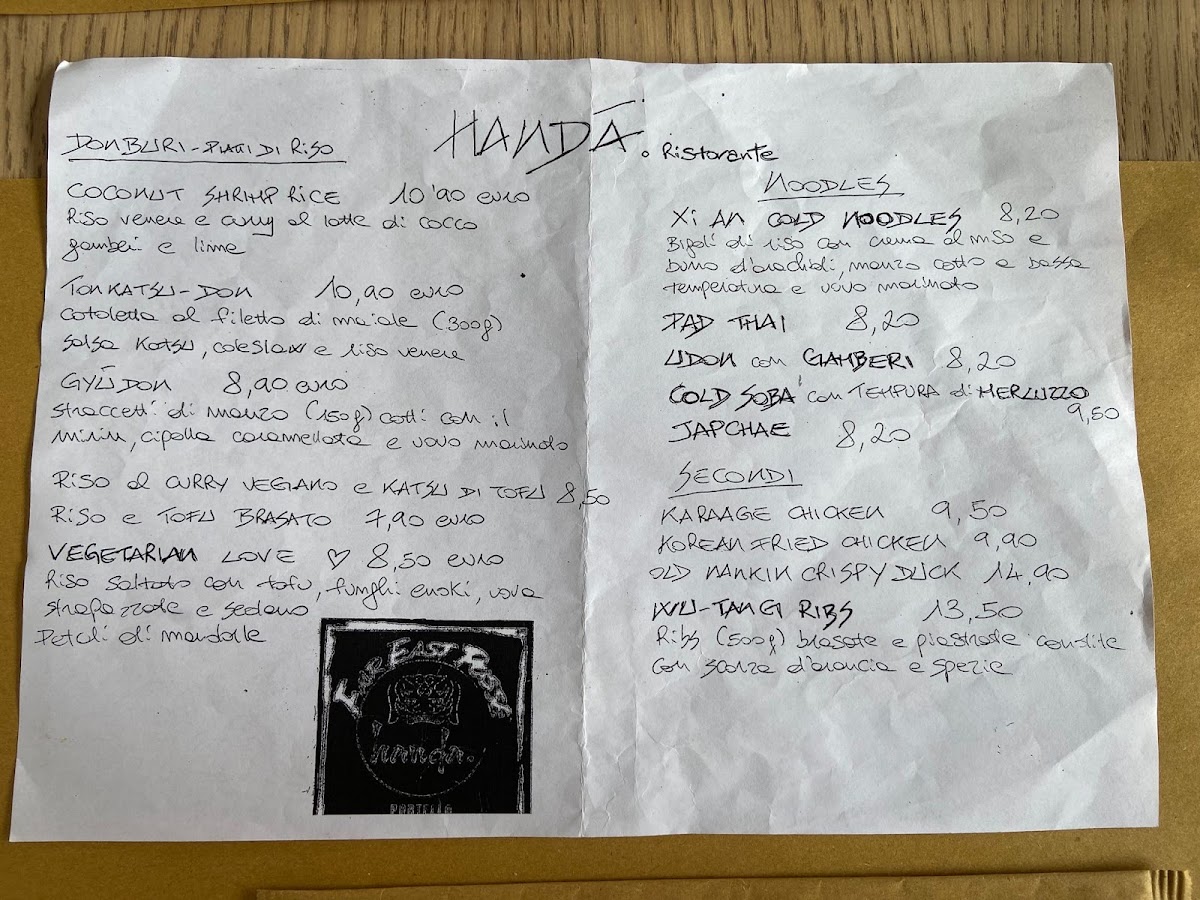 HANDĀ. Ristorante
DONBURI - PIATTI DI RISO
COCONUT SHRIMP RICE 10'90 euro
Riso venere e curry al latte di cocco
gamberi e lime
TONKATSU-DON 10,90 euro
Cotoletta al filetto di maiale (300g)
Salsa KATSU, coleslaw e riso venere
GYŪDON 8,90 euro
straccetti di manzo (150g) cotti con il
mirin, cipolla caramellata e uovo marinato
RISO al CURRY VEGANO e KATSU DI TOFU 8,50
RISO e TOFU BRASATO 7,90 euro
VEGETARIAN LOVE ♡ 8,50 euro
Riso saltato con tofu, funghi enoki, uova
strapazzate e sedano
Petali di mandorle
FAR EAST
handa.
PORTELLO
NOODLES
XI AN COLD NOODLES 8,20
Bigoli di riso con crema al miso e
burro d'arachidi, manzo cotto a bassa
temperatura e uovo marinato
PAD THAI 8,20
UDON con GAMBERI 8,20
COLD SOBA con TEMPURA di MERLUZZO
9,50
JAPCHAE 8,20
SECONDI
KARAAGE CHICKEN 9,50
KOREAN FRIED CHICKEN 9,90
OLD NANKIN CRISPY DUCK 14,90
WU-TANG RIBS 13,50
Ribs (500g) brasate e piastrate condite
con scorza d'arancia e spezie